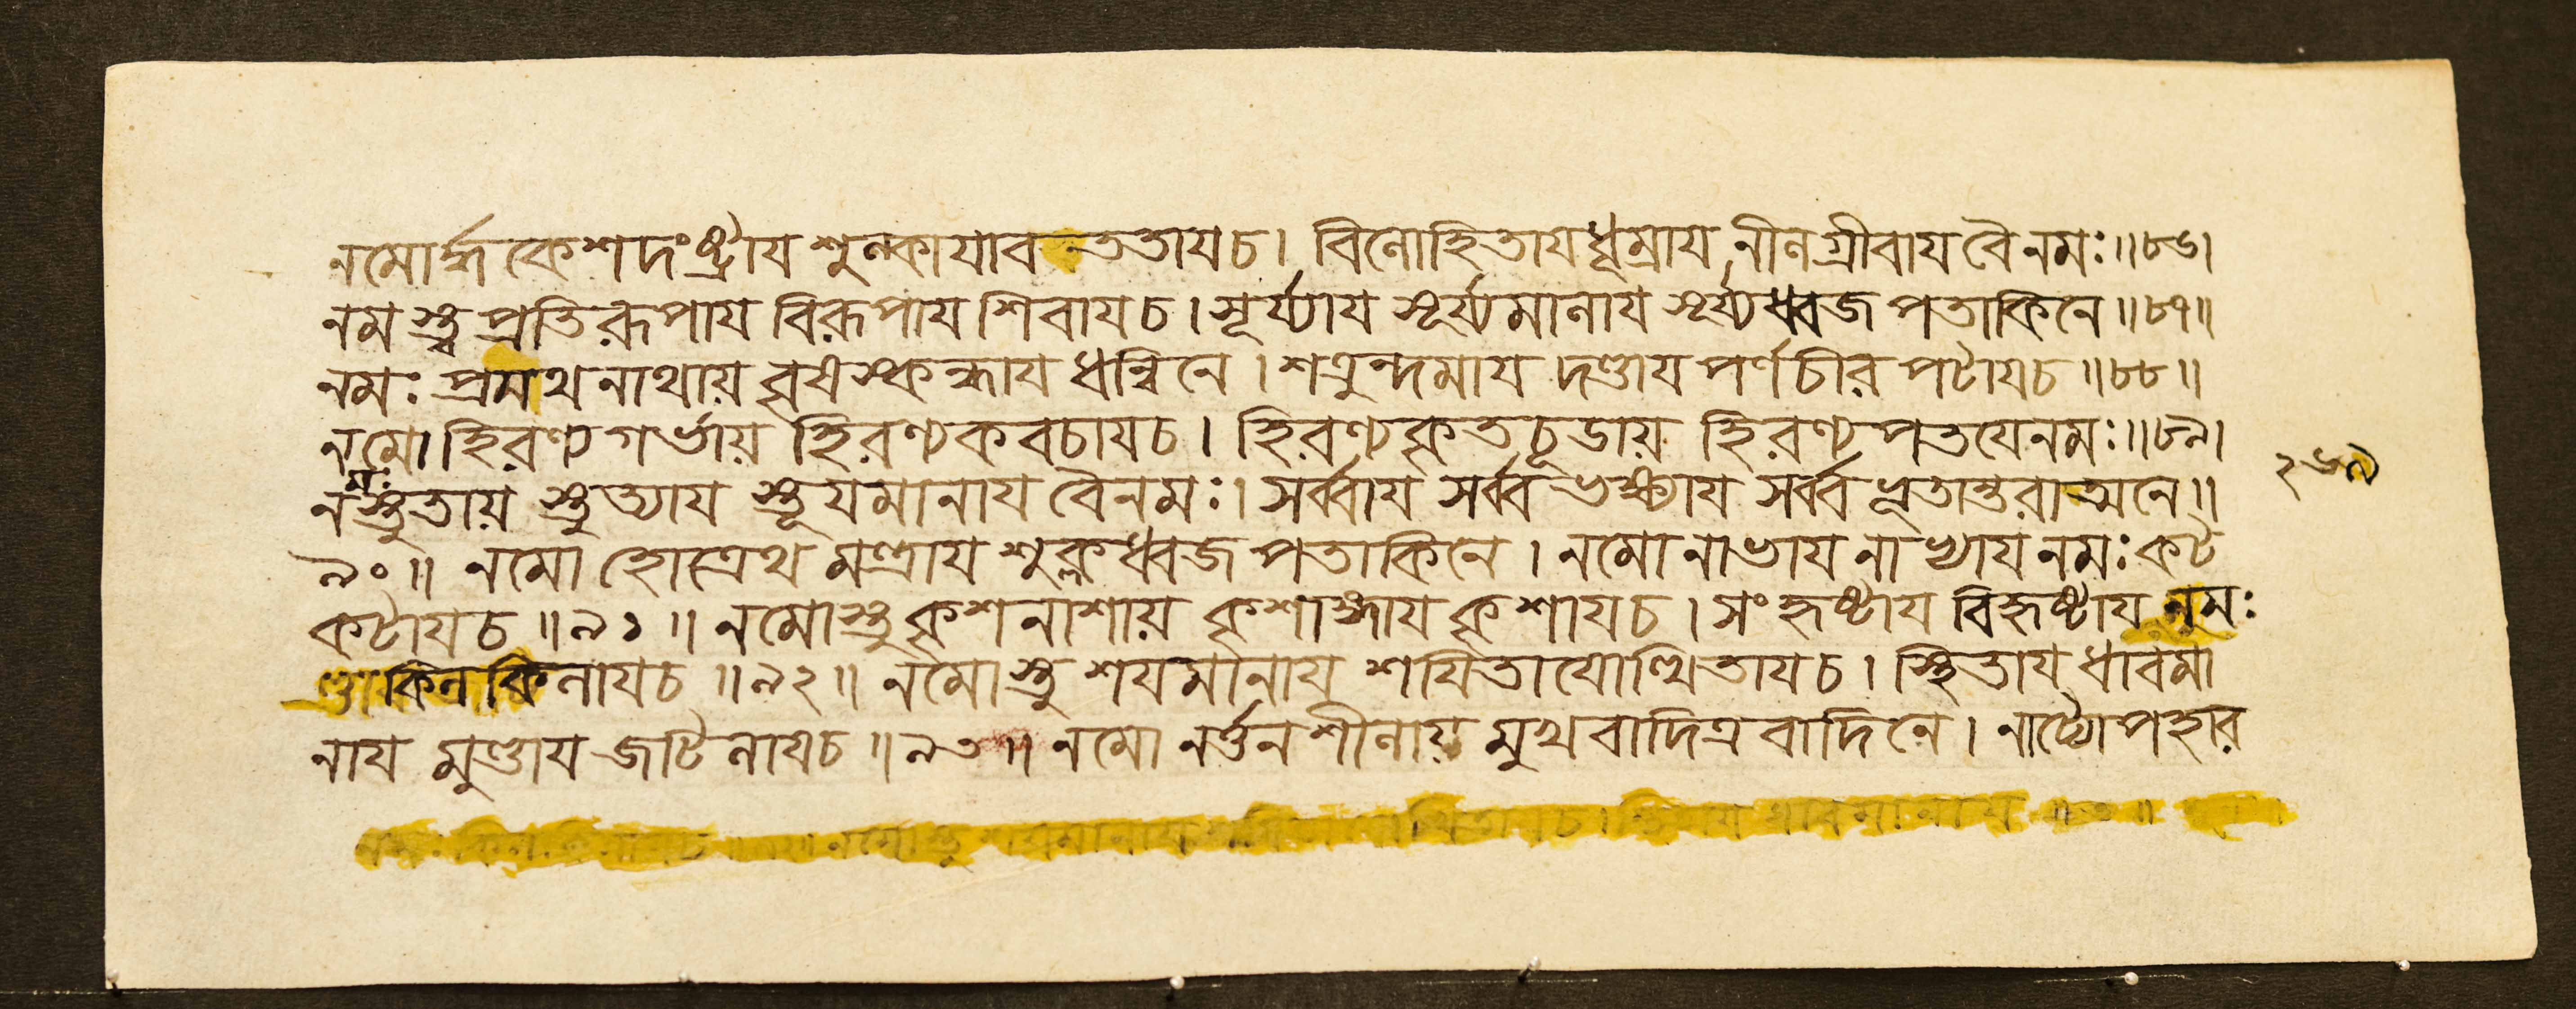 নমোর্দ্ধকেশদংষ্ট্রায শুক্লাযাবততাযচ। বিলোহিতাযধূম্রায নীলগ্রীবাযবৈনমঃ॥৮৬।
নমস্ত্বপ্রতিরূপায বিরূপায শিবাযচ। সূর্য্যায সূর্য্যমালায সূর্য্যধ্বজ পতাকিনে॥৮৭॥
নমঃ প্রমথনাথায় বৃষস্কন্ধায ধন্বিনে। শত্রুন্দমায দণ্ডায পর্ণচীর পটাযচ॥৮৮॥
নমো হিরণ্যগর্ভায় হিরণ্যকবচাযচ। হিরণ্যকৃতচূডায় হিরণ্যপতযেনমঃ॥৮৯।
নমঃস্তুতায় স্তুত্যায স্তূযমানায বৈনমঃ। সর্ব্বায সর্ব্বভক্ষ্যায সর্ব্বভূতান্তরাত্মনে॥
৯০॥ নমো হোত্রেথ মন্ত্রায শুক্লধ্বজ পতাকিনে। নমোনাভায নাভ্যায নমঃ কট
কটাযচ॥৯১॥ নমোস্তুকৃশনাশায় কৃশাঙ্গায কৃশাযচ। সংহৃষ্টায বিহৃষ্টায নমঃ
কিলকিলাযচ॥৯২॥ নমোস্তু শযমানায শযিতাযোত্থিতাযচ। স্থিতায ধাবমা
নায মুণ্ডায জটিলাযচ॥৯৩॥ নমো নর্ত্তনশীলায় মুখবাদিত্রবাদিনে। নাট্যোপহার
নমোস্তু শযমানায ধাবমানায
২৬৯